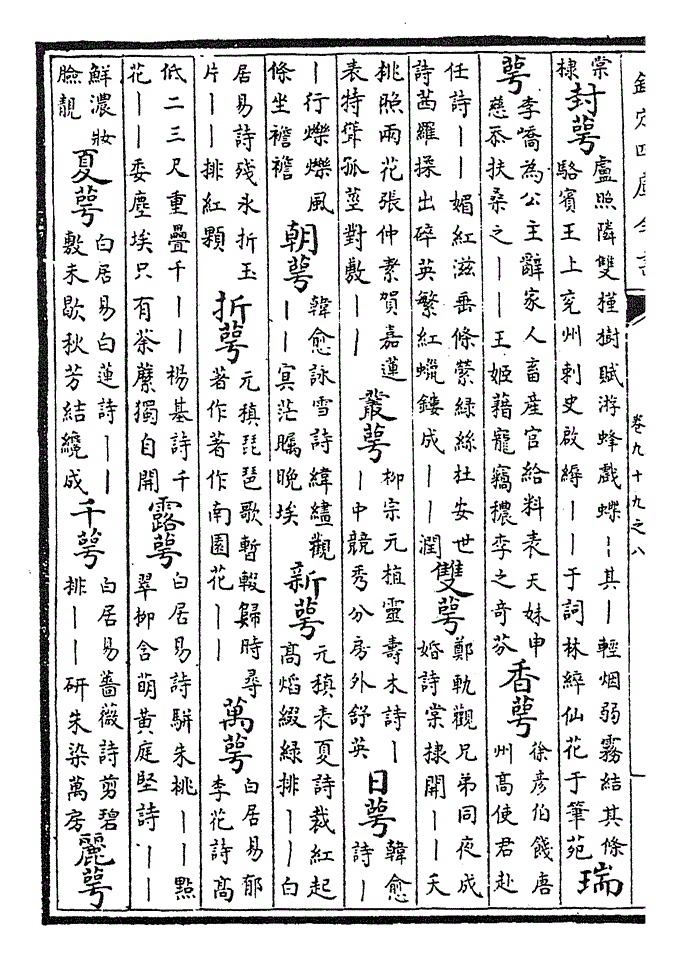 欽定四庫全書
卷九十九之八
棠
棣
封萼
盧照隣雙槿樹賦游蜂戲蝶丨其丨輕烟弱霧結其條
駱賓王上兖州刺史啟縟丨丨于詞林綷仙花于筆苑
瑞
萼
李嶠為公主辭家人畜産官給料表天妹申
慈忝扶桑之丨丨王姬藉寵竊穠李之奇芬
香萼
徐彦伯餞唐
州髙使君赴
任詩丨丨媚紅滋垂條縈緑絲杜安世
詩茜羅揉出碎英繁紅蠟鏤成丨丨潤
雙萼
鄭軌觀兄弟同夜成
婚詩棠棣開丨丨夭
桃照兩花張仲素賀嘉蓮
表特聳孤莖對敷丨丨
叢萼
柳宗元植靈壽木詩丨
丨中競秀分房外舒英
日萼
韓愈
詩丨
丨行爍爍風
條坐襜襜
朝萼
韓愈詠雪詩緯繣觀
丨丨冥茫矚晚埃
新萼
元稹表夏詩裁紅起
髙熖綴緑排丨丨白
居易詩殘永折玉
片丨丨排紅顆
折萼
元稹琵琶歌暫輟歸時尋
著作著作南園花丨丨
萬萼
白居易郁
李花詩髙
低二三尺重疊千丨丨楊基詩千
花丨丨委塵埃只有荼蘪獨自開
露萼
白居易詩駢朱桃丨丨點
翠柳含萌黄庭堅詩丨丨
鮮濃妝
臉靚
夏萼
白居易白蓮詩丨丨
敷未歇秋芳結纔成
千萼
白居易薔薇詩剪碧
排丨丨研朱染萬房
麗萼